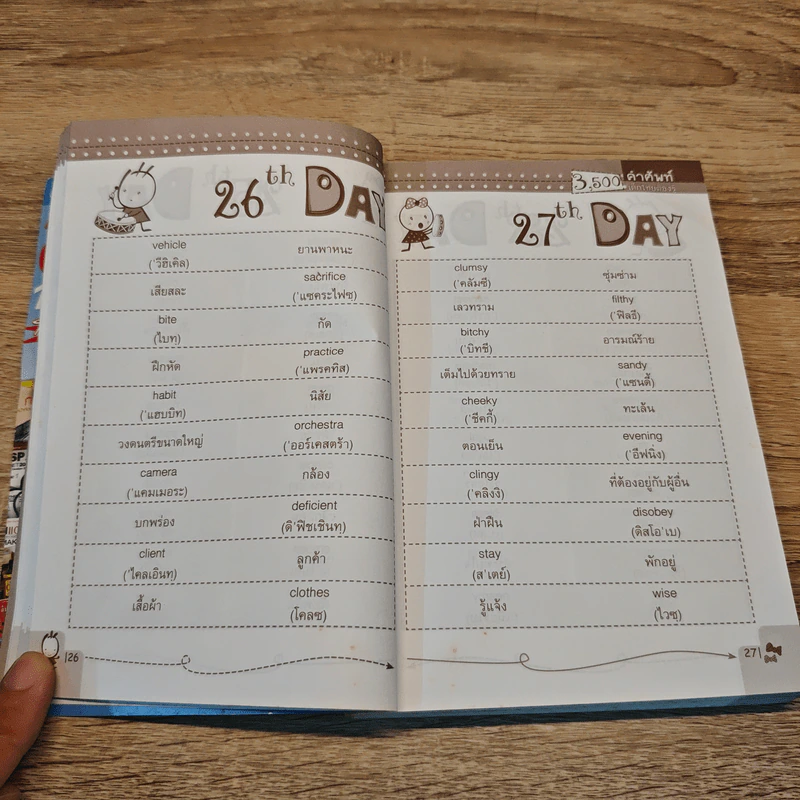 26th DAY
vehicle ยานพาหนะ
('วีฮิเคิล)
เสียสละ sacrifice
('แซคระไฟซฺ)
bite กัด
(ไบทฺ)
ฝึกหัด practice
('แพรคทิส)
habit นิสัย
('แฮบบิท)
วงดนตรีขนาดใหญ่ orchestra
('ออร์เคสตร้า)
camera กล้อง
('แคมเมอระ)
บกพร่อง deficient
(ดิ'ฟิชเชินทฺ)
client ลูกค้า
('ไคลเอินทฺ)
เสื้อผ้า clothes
(โคลซ)
26
3,500 คำศัพท์
27th DAY
clumsy ซุ่มซ่าม
('คลัมซี)
เลวทราม filthy
('ฟิลธี)
bitchy อารมณ์ร้าย
('บิทชี)
เต็มไปด้วยทราย sandy
('แซนดี้)
cheeky ทะเล้น
('ชีคกี้)
ตอนเย็น evening
('อีฟนิ่ง)
clingy ที่ต้องอยู่กับผู้อื่น
('คลิงงิ)
ฝ่าฝืน disobey
(ดิสโอ'เบ)
stay พักอยู่
(ส'เตย์)
รู้แจ้ง wise
(ไวซฺ)
27